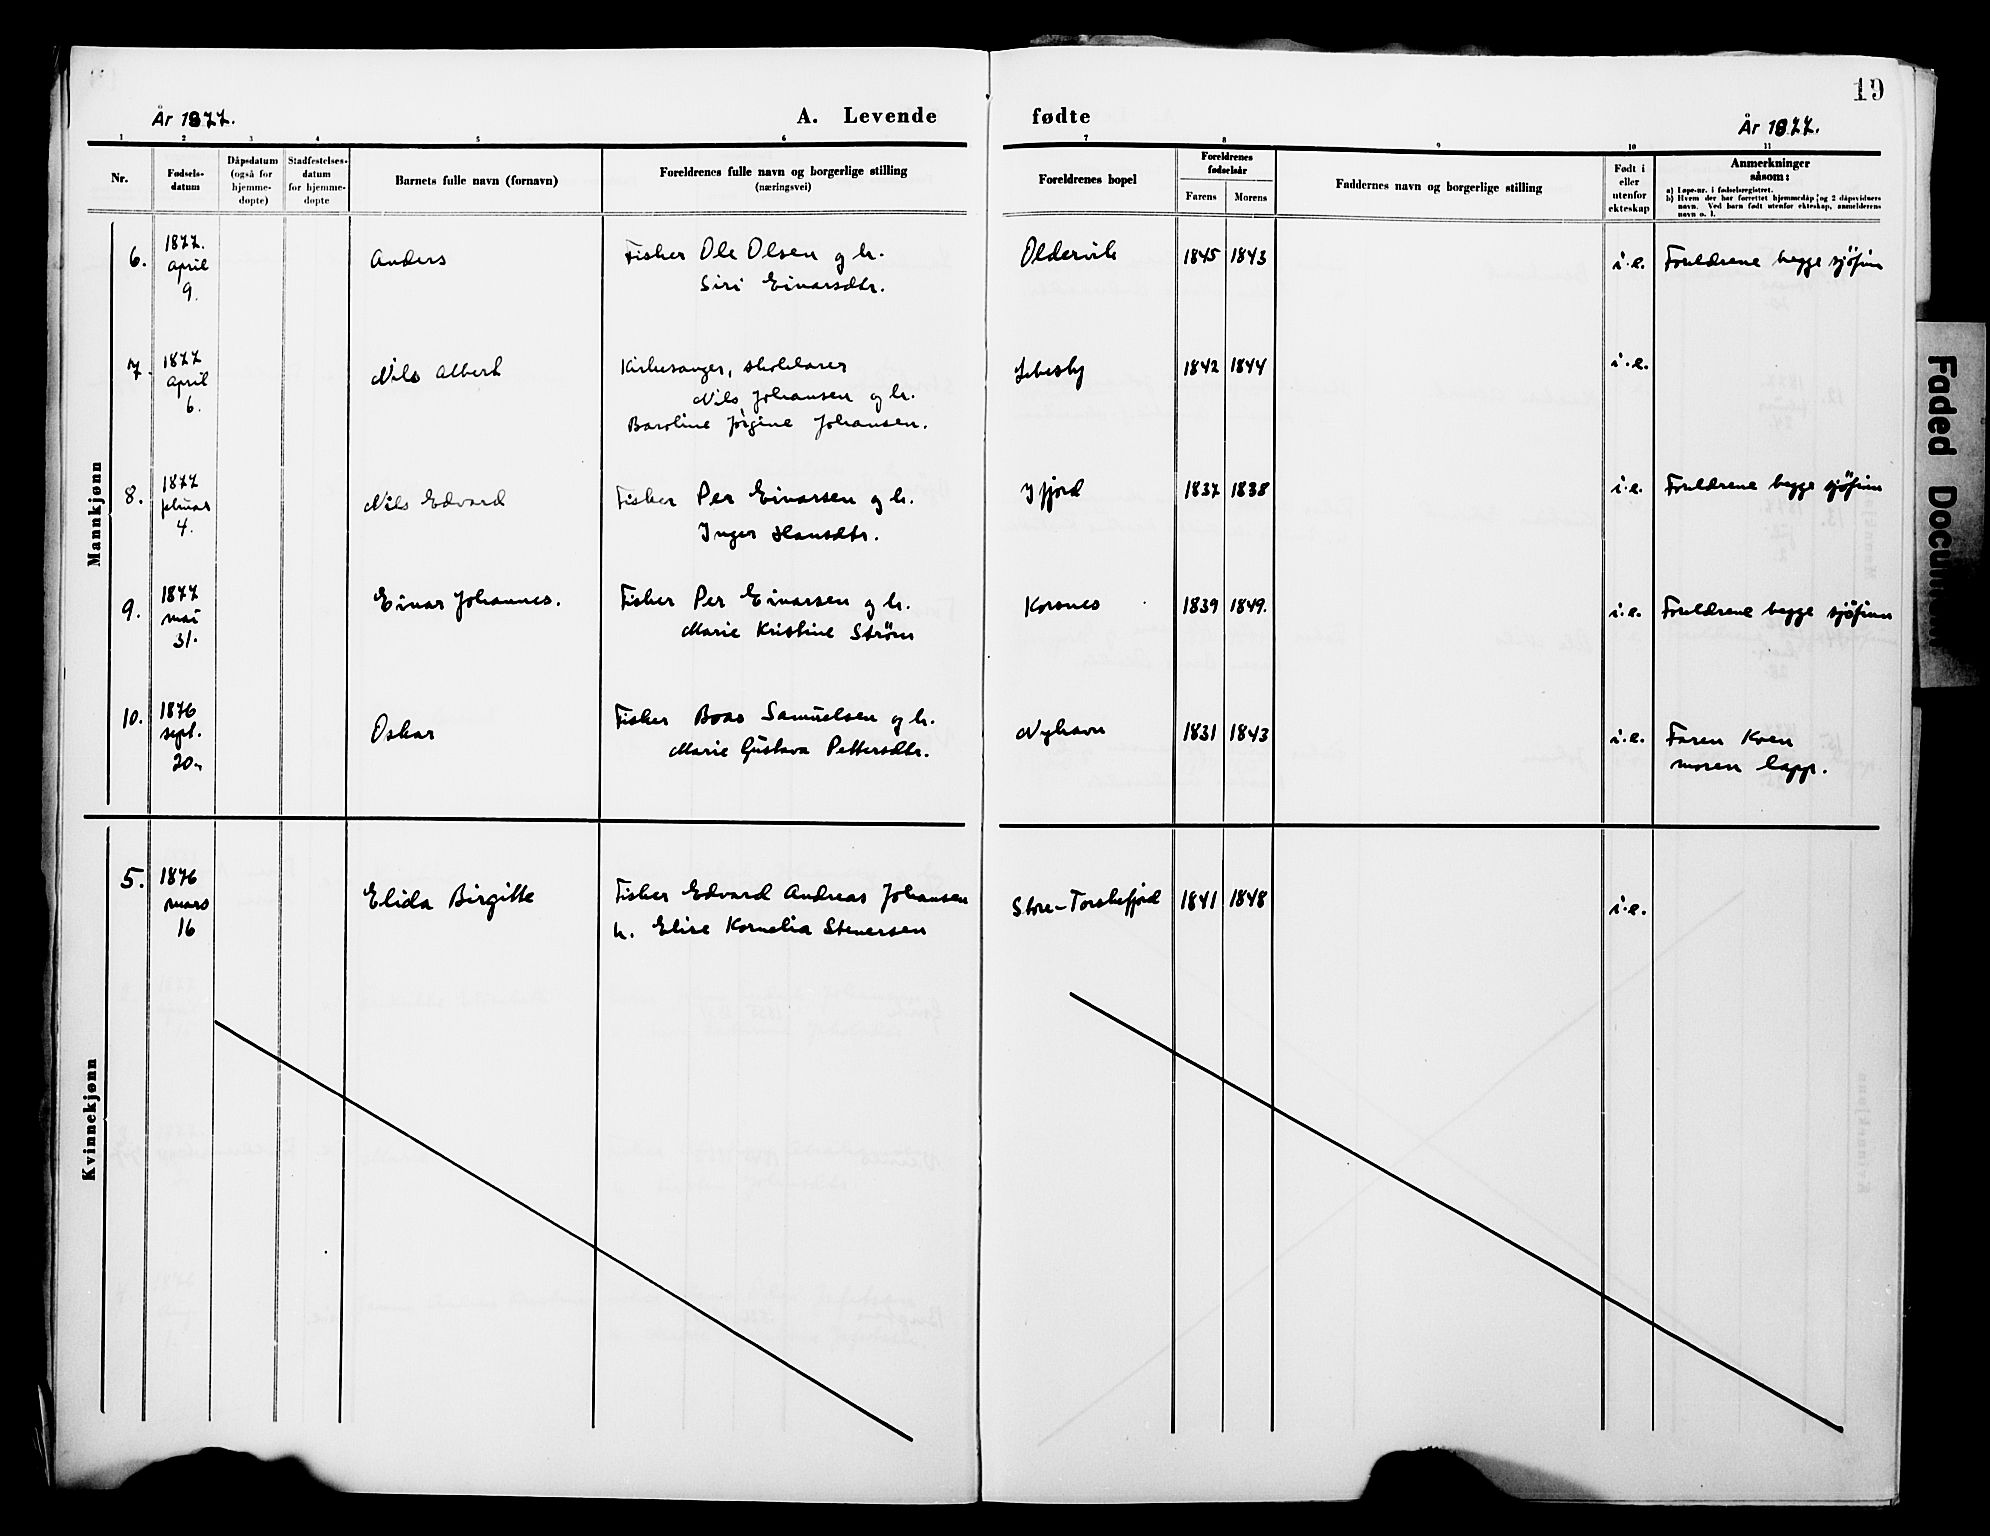 19
År 1877.
A. Levende
fødte
År 1877.
1 2 3 4 5 6 7 8 9 10 11
Nr.
Fødsels-
datum
Dåpsdatum
(også for
hjemme-
døpte)
Stadfestelses-
datum
for hjemme-
døpte
Barnets fulle navn (fornavn)
Foreldrenes fulle navn og borgerlige stilling
(næringsvei)
Foreldrenes bopel
Foreldrenes
fødselsår
Farens Morens
Faddernes navn og borgerlige stilling
Født i
eller
utenfor
ekteskap
Anmerkninger
såsom:
a) Løpe-nr. i fødselsregistret.
b) Hvem der har forrettet hjemmedåp og 2 dåpsvidners
navn. Ved barn født utenfor ekteskap, anmelderens
navn o. l.
Mannkjønn
6.
1877.
april
9.
Anders
Fisker Ole Olsen og h.
Siri Einarsdtr.
Oldervik
1845 1843
i.e.
Foreldrene begge sjöfinn
7.
1877
april
6.
Nils Albert
Kirkesanger, skolelærer
Nils Johansen og h.
Baroline Jörgine Johansen.
Lebesby
1842 1844
i.e.
8.
1877
februar
4.
Nils Edvard
Fisker Per Einarsen og h.
Inger Hansdtr.
Ifjord
1837 1838
i.e.
Foreldrene begge sjöfinn
9.
1877
mai
31.
Einar Johannes.
Fisker Per Einarsen og h.
Marie Kristine Ström
Korsnes
1839 1849.
i.e.
Foreldrene begge sjöfinn
10.
1876
sept.
20.
Oskar
Fisker Boas Samuelsen og h.
Marie Gustava Pettersdtr.
Nyhavn
1831 1843
i.e.
Faren Kven
moren lapp.
Kvinnekjønn
5.
1876
mars
16
Elida Birgitte
Fisker Edvard Andreas Johansen
h. Elise Kornelia Stenersen
Store-Torskefjord
1841 1848
i.e.
Faded Document